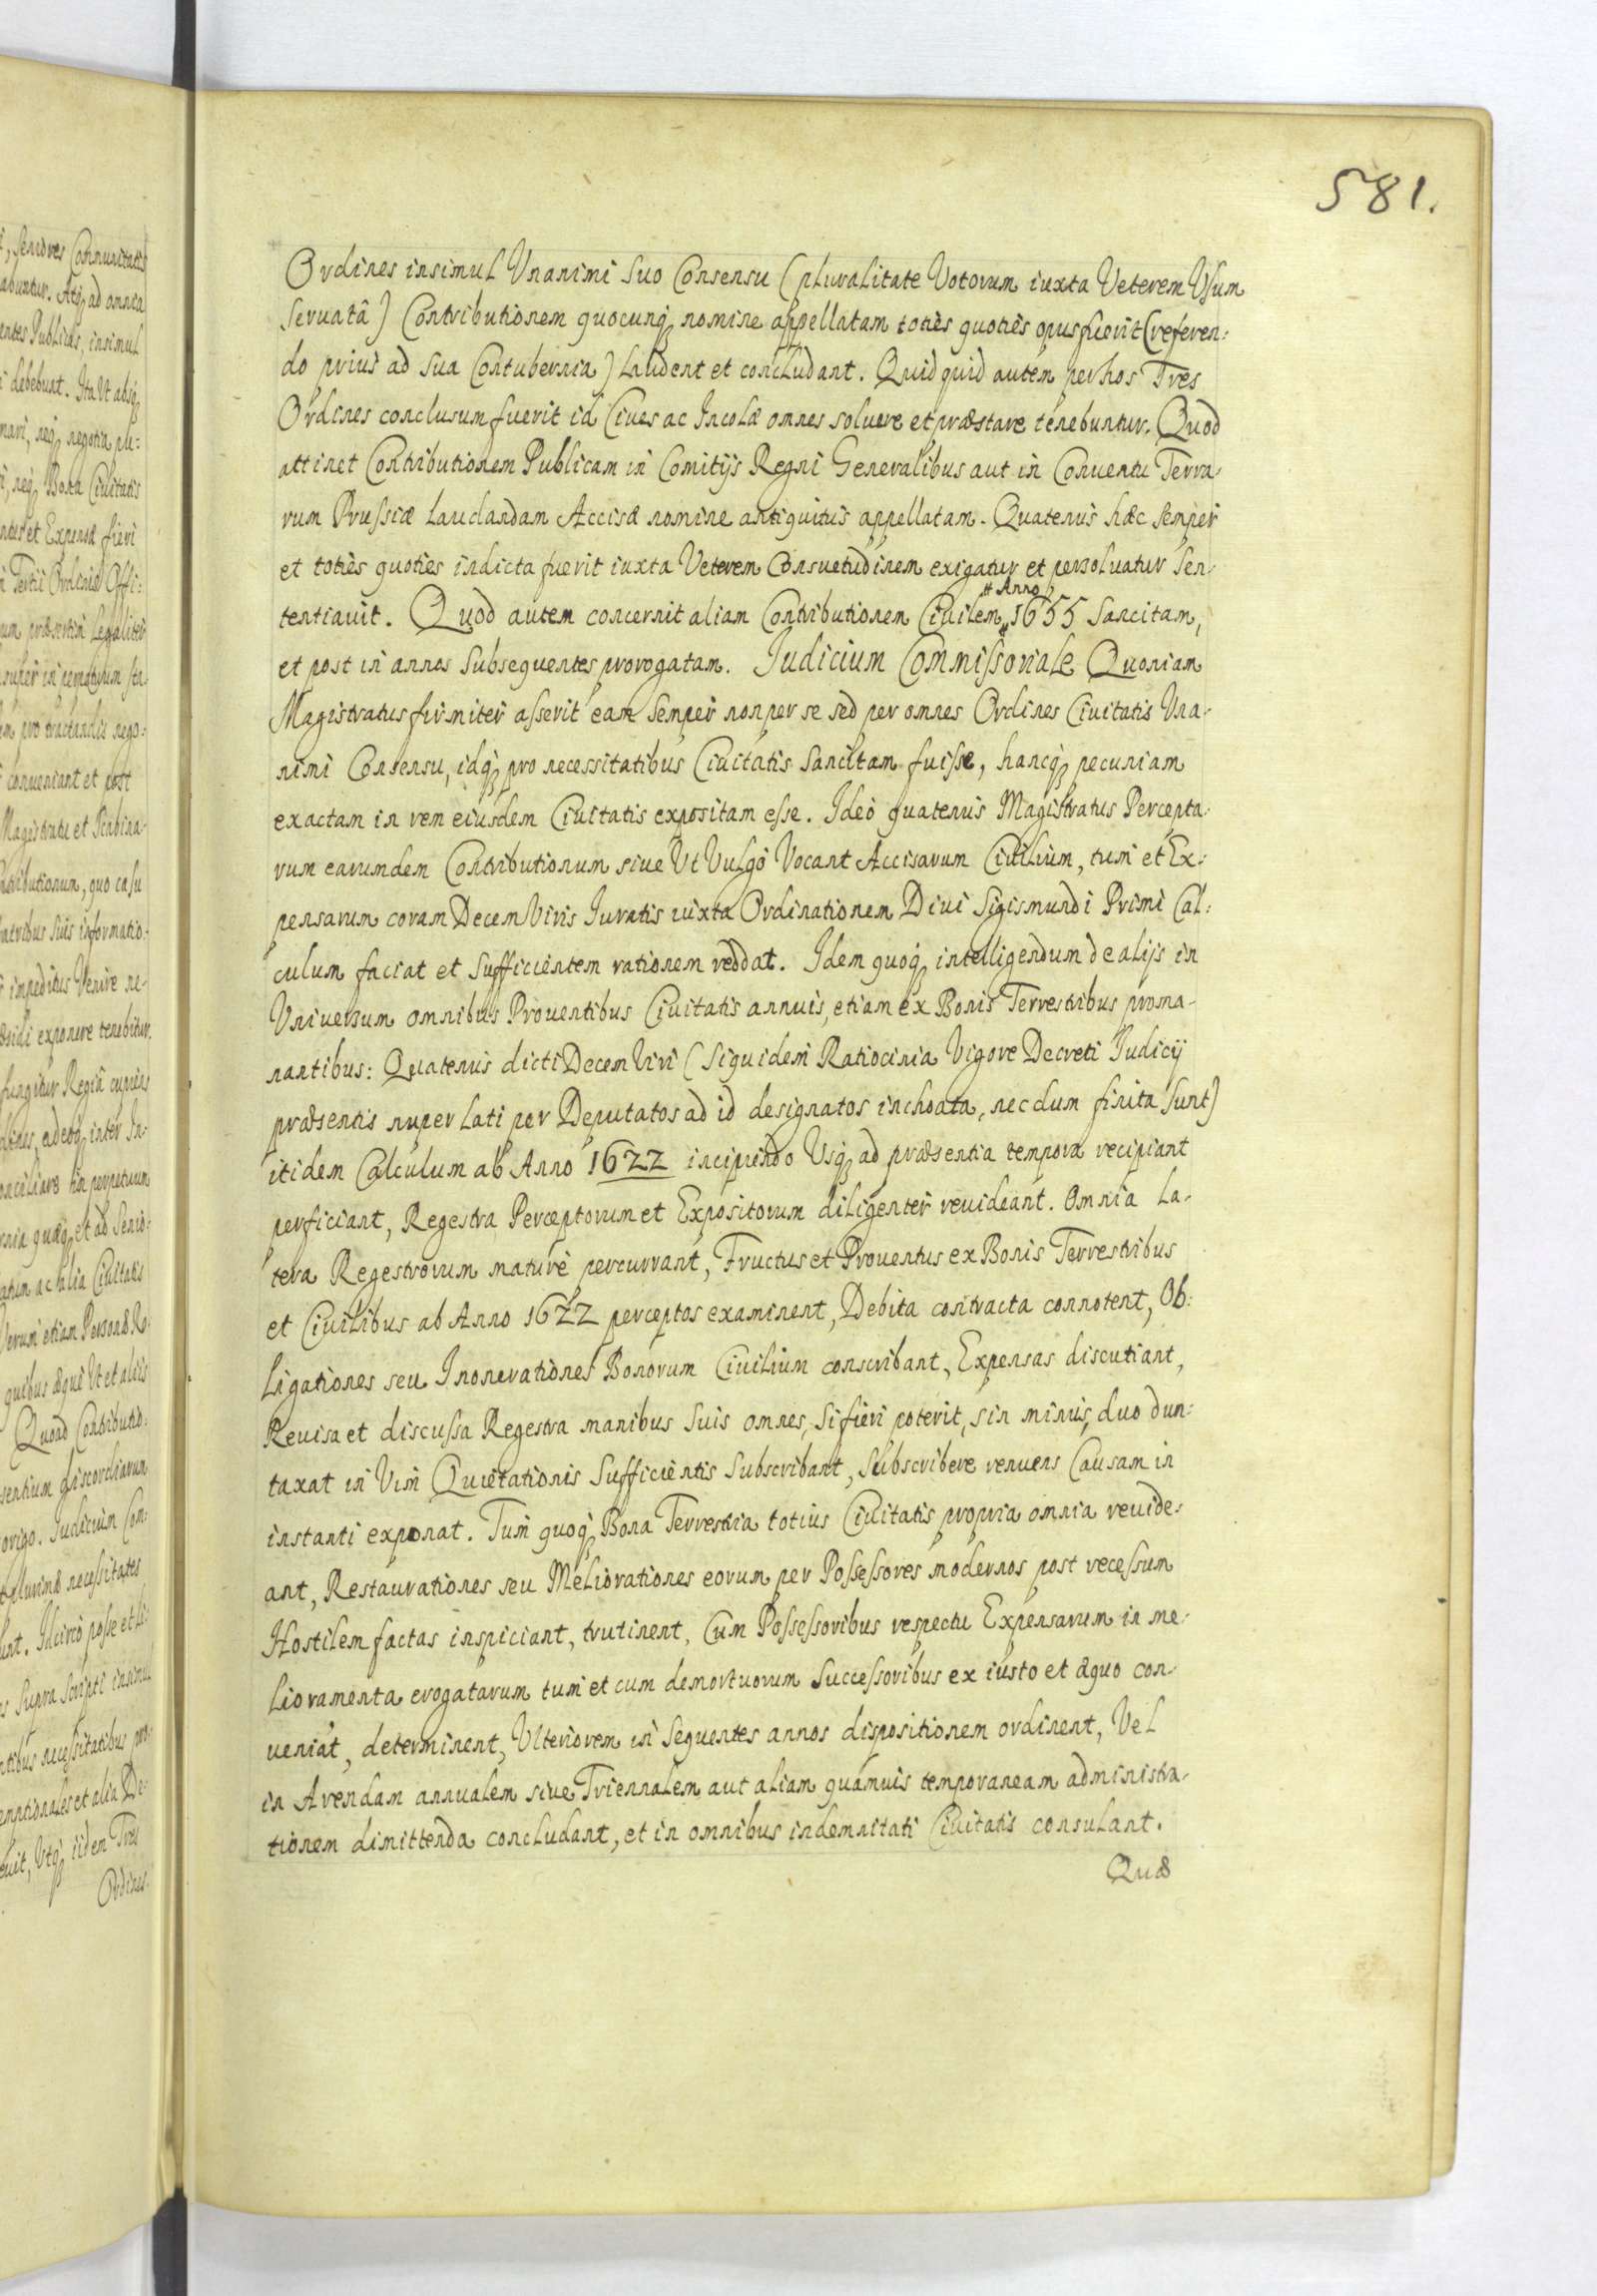 581.
Ordines insimul Unanimi suo Consensu (pluralitate Votorum iuxta Veterem Usum
seruatâ) Contributionem quocunq; nomine appellatam toties quoties opus fuerit (referen:
do prius ad sua Contubernia) laudent et concludant. Quidquid autem per hos Tres
Ordines conclusum fuerit id Ciues ac Incolæ omnes soluere et præstare tenebuntur. Quod
attinet Contributionem Publicam in Comitijs Regni Generalibus aut in Conuentu Terra-
rum Prussiæ laudandam Accisæ nomine antiquitus appellatam. Quatenus hæc semper
et toties quoties indicta fuerit iuxta Veterem Consuetudinem exigatur et persoluatur Sen-
tentiauit. Quod autem concernit aliam Contributionem Ciuilem Anno 1655 Sancitam,
et post in annos subsequentes prorogatam. Iudicium Commissoriale Quoniam
Magistratus firmiter asserit eam semper non per se sed per omnes Ordines Ciuitatis Una-
nimi Consensu, idq; pro necessitatibus Ciuitatis Sancitam fuisse, hancq; pecuniam
exactam in rem eiusdem Ciuitatis expositam esse. Ideò quatenus Magistratus Percepta-
rum earumdem Contributionum siue Ut Vulgò Vocant Accisarum Ciuilium, tum et Ex-
pensarum coram Decem Viris Iuratis iuxta Ordinationem Diui Sigismundi Primi Cal:
culum faciat et sufficientem rationem reddat. Idem quoq; intelligendum de alijs in
Uniuersum omnibus Prouentibus Ciuitatis annuis, etiam ex Bonis Terrestribus proma-
nantibus: Quatenus dicti Decem Viri (siquidem Ratiocinia Vigore Decreti Iudicij
præsentis nuper lati per Deputatos ad id designatos inchoata, nec dum finita sunt)
itidem Calculum ab Anno 1622 incipiendo Usq; ad præsentia tempora recipiant
perficiant, Regestra Perceptorum et Expositorum diligenter reuideant. Omnia La-
tera Regestrorum maturè percurrant, Fructus et Prouentus ex Bonis Terrestribus
et Ciuilibus ab Anno 1622 perceptos examinent, Debita contracta connotent, Ob:
ligationes seu Inonerationes Bonorum Ciuilium conscribant, Expensas discutiant,
Reuisa et discussa Regestra manibus suis omnes, si fieri poterit, sin minus, duo dun:
taxat in Vim Quietationis Sufficientis Subscribant, Subscribere renuens Causam in
instanti exponat. Tum quoq; Bona Terrestria totius Ciuitatis propria omnia reuide-
ant, Restaurationes seu Meliorationes eorum per Possessores modernos post recessum
Hostilem factas inspiciant, trutinent, Cum Possessoribus respectu Expensarum in me-
lioramenta erogatarum tum et cum demortuorum Successoribus ex iusto et æquo con-
ueniat, determinent, Ulteriorem in sequentes annos dispositionem ordinent, Vel
in Arendam annualem siue Triennalem aut aliam quamuis temporaneam administra-
tionem dimittenda concludant, et in omnibus indemnitati Ciuitatis consulant.
Quæ